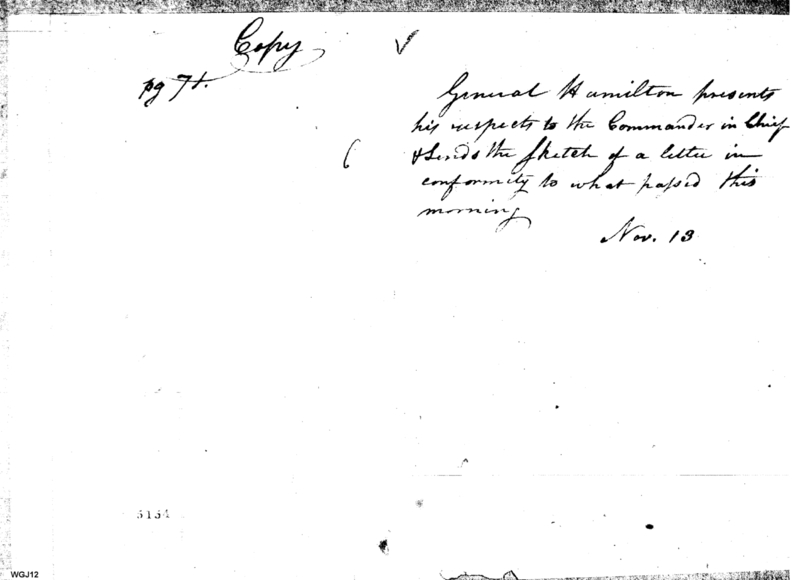 Copy
pg 71.
General Hamilton presents
his respects to the Commander in Chief
& Sends the Sketch of a letter in
conformity to what passed this
morning
Nov. 13
5154
WGJ12